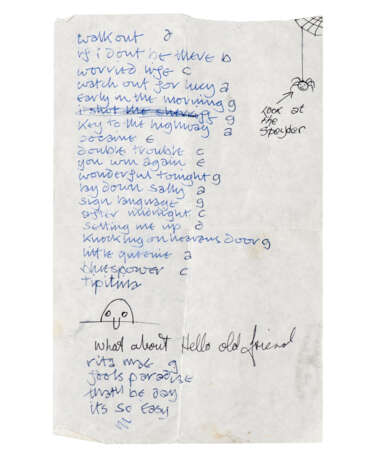 walk out d
if i dont be there b
worried life c
watch out for lucy a
Early in the morning g
i shot the sheriff g
Key to the highway a
cocaine E
double trouble c
you win again E
wonderful tonight g
lay down sally a
sign language g
after midnight c
setting me up d
knocking on heavens door g
little queenie a
bluespower c
tipitina
look at
the
speyder
what about Hello old friend
rita mae g
fools paradise
thatll be day
its so easy